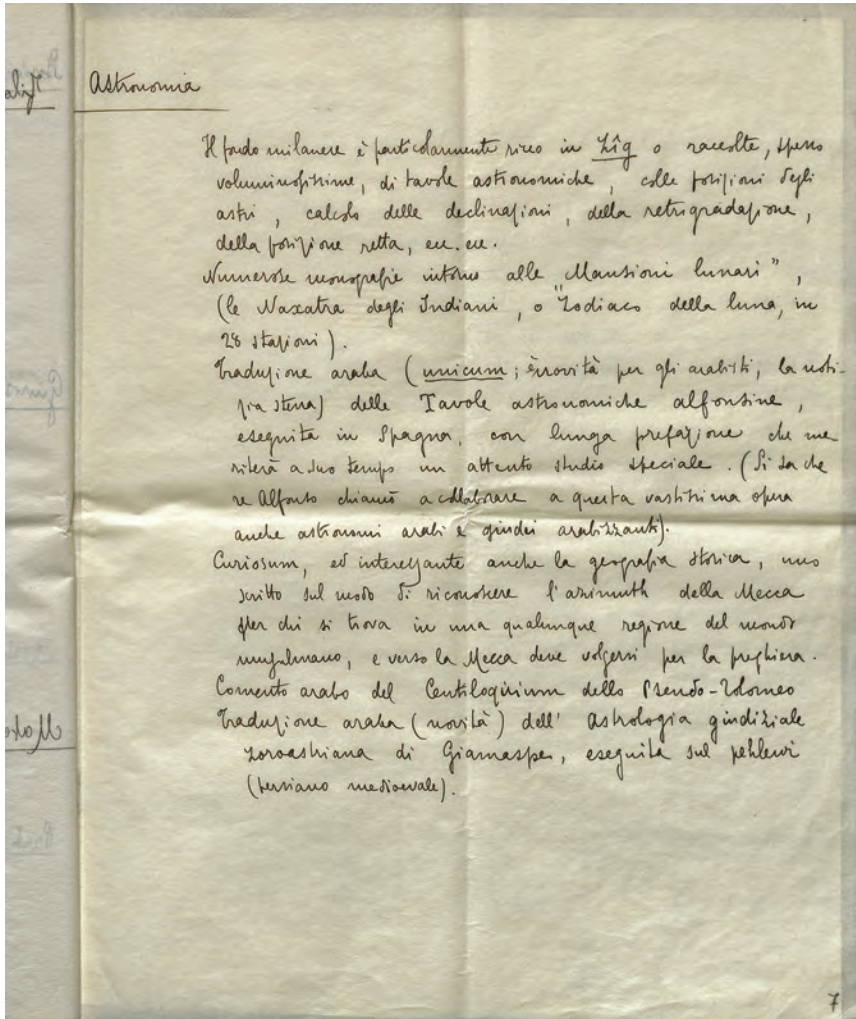 Astronomia
Il fondo milanese è particolarmente ricco in Zîg o raccolte, spesso
voluminosissime, di tavole astronomiche, colle posizioni degli
astri, calcolo delle declinazioni, della retrogradazione,
della posizione retta, ecc. ecc.
Numerose monografie intorno alle „Mansioni lunari”,
(le Naxatra degli Indiani, o Zodiaco della luna, in
28 stazioni).
Traduzione araba (unicum; è novità per gli arabisti, la noti-
zia stessa) delle Tavole astronomiche alfonsine,
eseguita in Spagna, con lunga prefazione che me
riterà a suo tempo un attento studio speciale. (Si sa che
re Alfonso chiamò a collaborare a questa vastissima opera
anche astronomi arabi e giudei arabizzanti).
Curiosum, ed interessante anche la geografia storica, uno
scritto sul modo di riconoscere l'azimuth della Mecca
per chi si trova in una qualunque regione del mondo
musulmano, e verso la Mecca deve volgersi per la preghiera.
Comento arabo del Centiloquium dello Pseudo-Tolomeo
Traduzione araba (novità) dell' Astrologia giudiziale
zoroastriana di Giamaspe, eseguita sul pehlewi
(persiano medioevale).
7